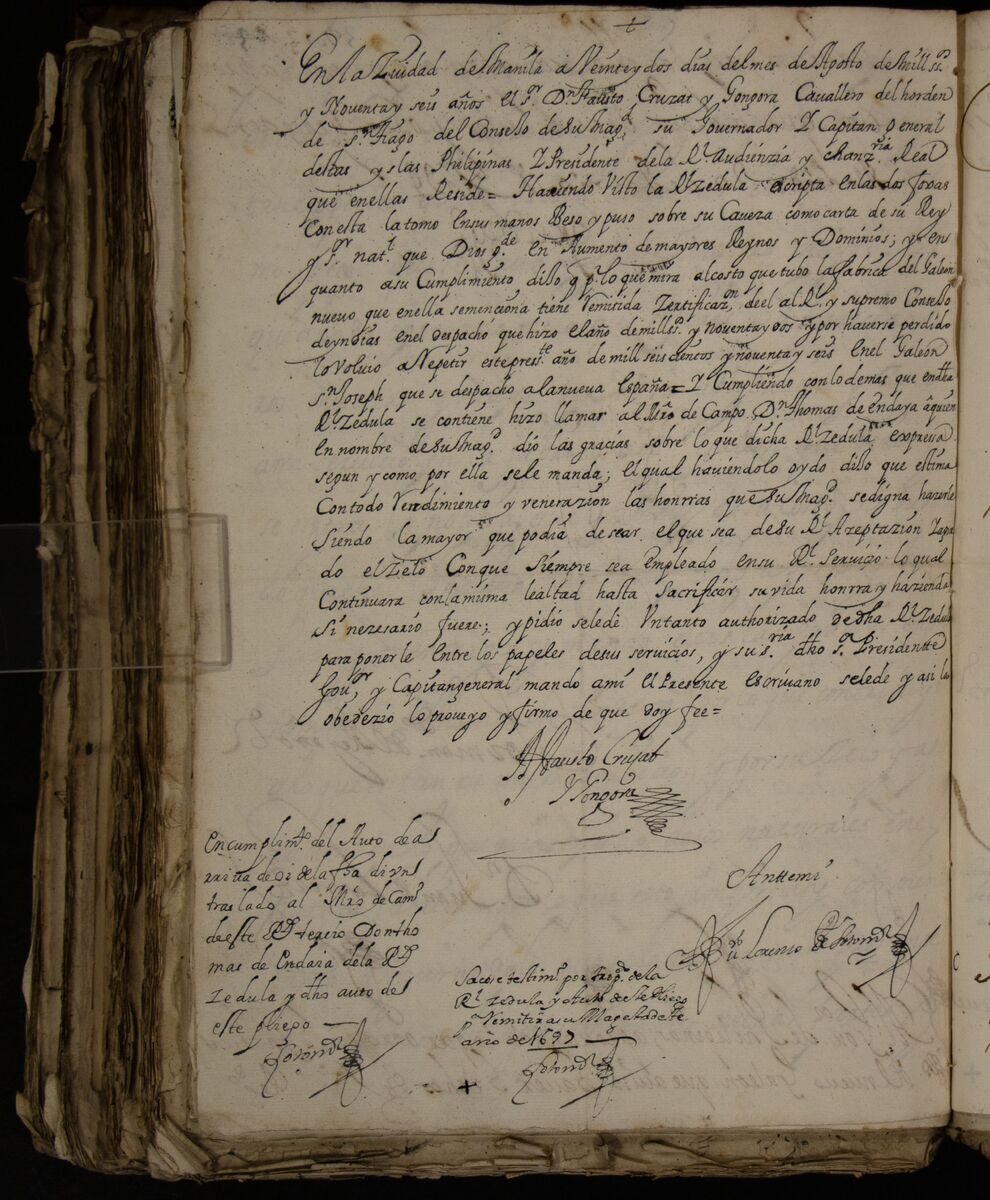 +
En la Ziudad de Manila a Veinte y dos dias del mes de Agosto de Mill ss.os
y Noventa y seis años el s.r D.n Fausto Cruzat y Gongora Cavallero del horden
de s.n tiago del Consejo de su Mag.d su Governador Y Capitan general
destas yslas Philipinas Y Presidente de la R.l Audienzia y chanz.ria Real
que en ellas Reside = Haviendo Visto la R.l zedula escripta en las dos foxas
Con esta la tomo en sus manos Beso y puso sobre su Caveza como carta de su Rey
y s.or nat.l que Dios g.de en Aumento de mayores Reynos y Dominios; y en
quanto a su Cumplimiento dijo q p.r lo que mira al costo que tubo la fabrica del Galeon
nuevo que en ella se menciona tiene Remitida Zertificaz.on de el al R.l y supremo Consejo
de yndias en el despacho que hizo el año de mill s.s y noventa y dos y por haverse perdido
lo volvio a Repetir este press.te año de mill seiscientos y noventa y seis en el Galeon
s.n Joseph que se despacho a la nueva España = Y Cumpliendo con lo demas que en dha
R.l Zedula se contiene hizo llamar al Mro de Campo D.n Thomas de endaya a quien
en nombre de su Mag.d dio las gracias sobre lo que dicha R.l zedula expresa
segun y como por ella se le manda; el qual haviendolo oydo dijo que estima
Con todo Rendimiento y venerazion las honrras que su Mag.d se digna hazerle
siendo la mayor que podia desear el que sea de su R.l Azeptazion
do el zelo Con que siempre sea empleado en su R.l servicio lo qual
Continuara con la misma lealtad hasta sacrificar su vida honrra y hazienda
si nezesario fuere; y pidio se le de Un tanto authorizado de dha R.l zedula
para ponerle entre los papeles de sus servicios, y su s.ria dho s.r Presidentte
Gov.or y Capitan general mando a mi el Presente escrivano se le de y asi lo
obedezio lo proveyo y firmo de que doy fee =
D Fausto Cruzat
Y Gongora
En cumplim.to del Auto de a
rriva de oi de la fha di un
traslado al Mro de Cam.o
de este R.l terzio Don tho
mas de Endaia de la R.l
zedula y dho auto de
este pliego
Anttemi
Sacose testim.o por trip.do de la
R.l zedula y Auto de este Pliego
p.a Remitir a su Magestad este
año de 1697
+